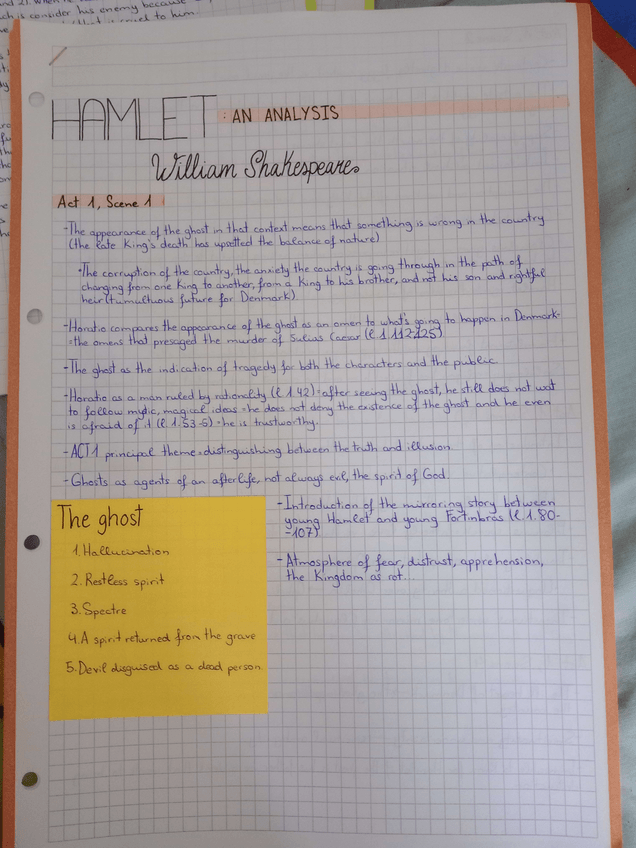 nd 21. When he
ch is consider his enemy because
is cruel to him.
HAMLET: AN ANALYSIS
William Shakespeare
Act 1, Scene 1
-The appearance of the ghost in that context means that something is wrong in the country
(the late King's death has upsetted the balance of nature)
·The corruption of the country, the anxiety the country is going through in the path of
changing from one King to another, from a King to his brother, and not his son and rightful
heir (tumultuous future for Denmark)
-Horatio compares the appearance of the ghost as an omen to what's going to happen in Denmark=
=the omens that presaged the murder of Julius Caesar (l 1 112-125)
-The ghost as the indication of tragedy for both the characters and the public.
-Horatio as a man ruled by rationality (l 1.42)=after seeing the ghost, he still does not wat
to follow mytic, magical ideas=he does not deny the existence of the ghost and he even
is afraid of it (l 1.53-5)=he is trustworthy.
-ACT1 principal theme=distinguishing between the truth and illusion.
-Ghosts as agents of an afterlife, not always evil, the spirit of God.
The ghost
1.Hallucination
2.Restless spirit
3.Spectre
4.A spirit returned from the grave
5.Devil disguised as a dead person.
-Introduction of the mirroring story between
young Hamlet and young Fortinbras (l 1.80-
-107)
-Atmosphere of fear, distrust, apprehension,
the Kingdom as rot...